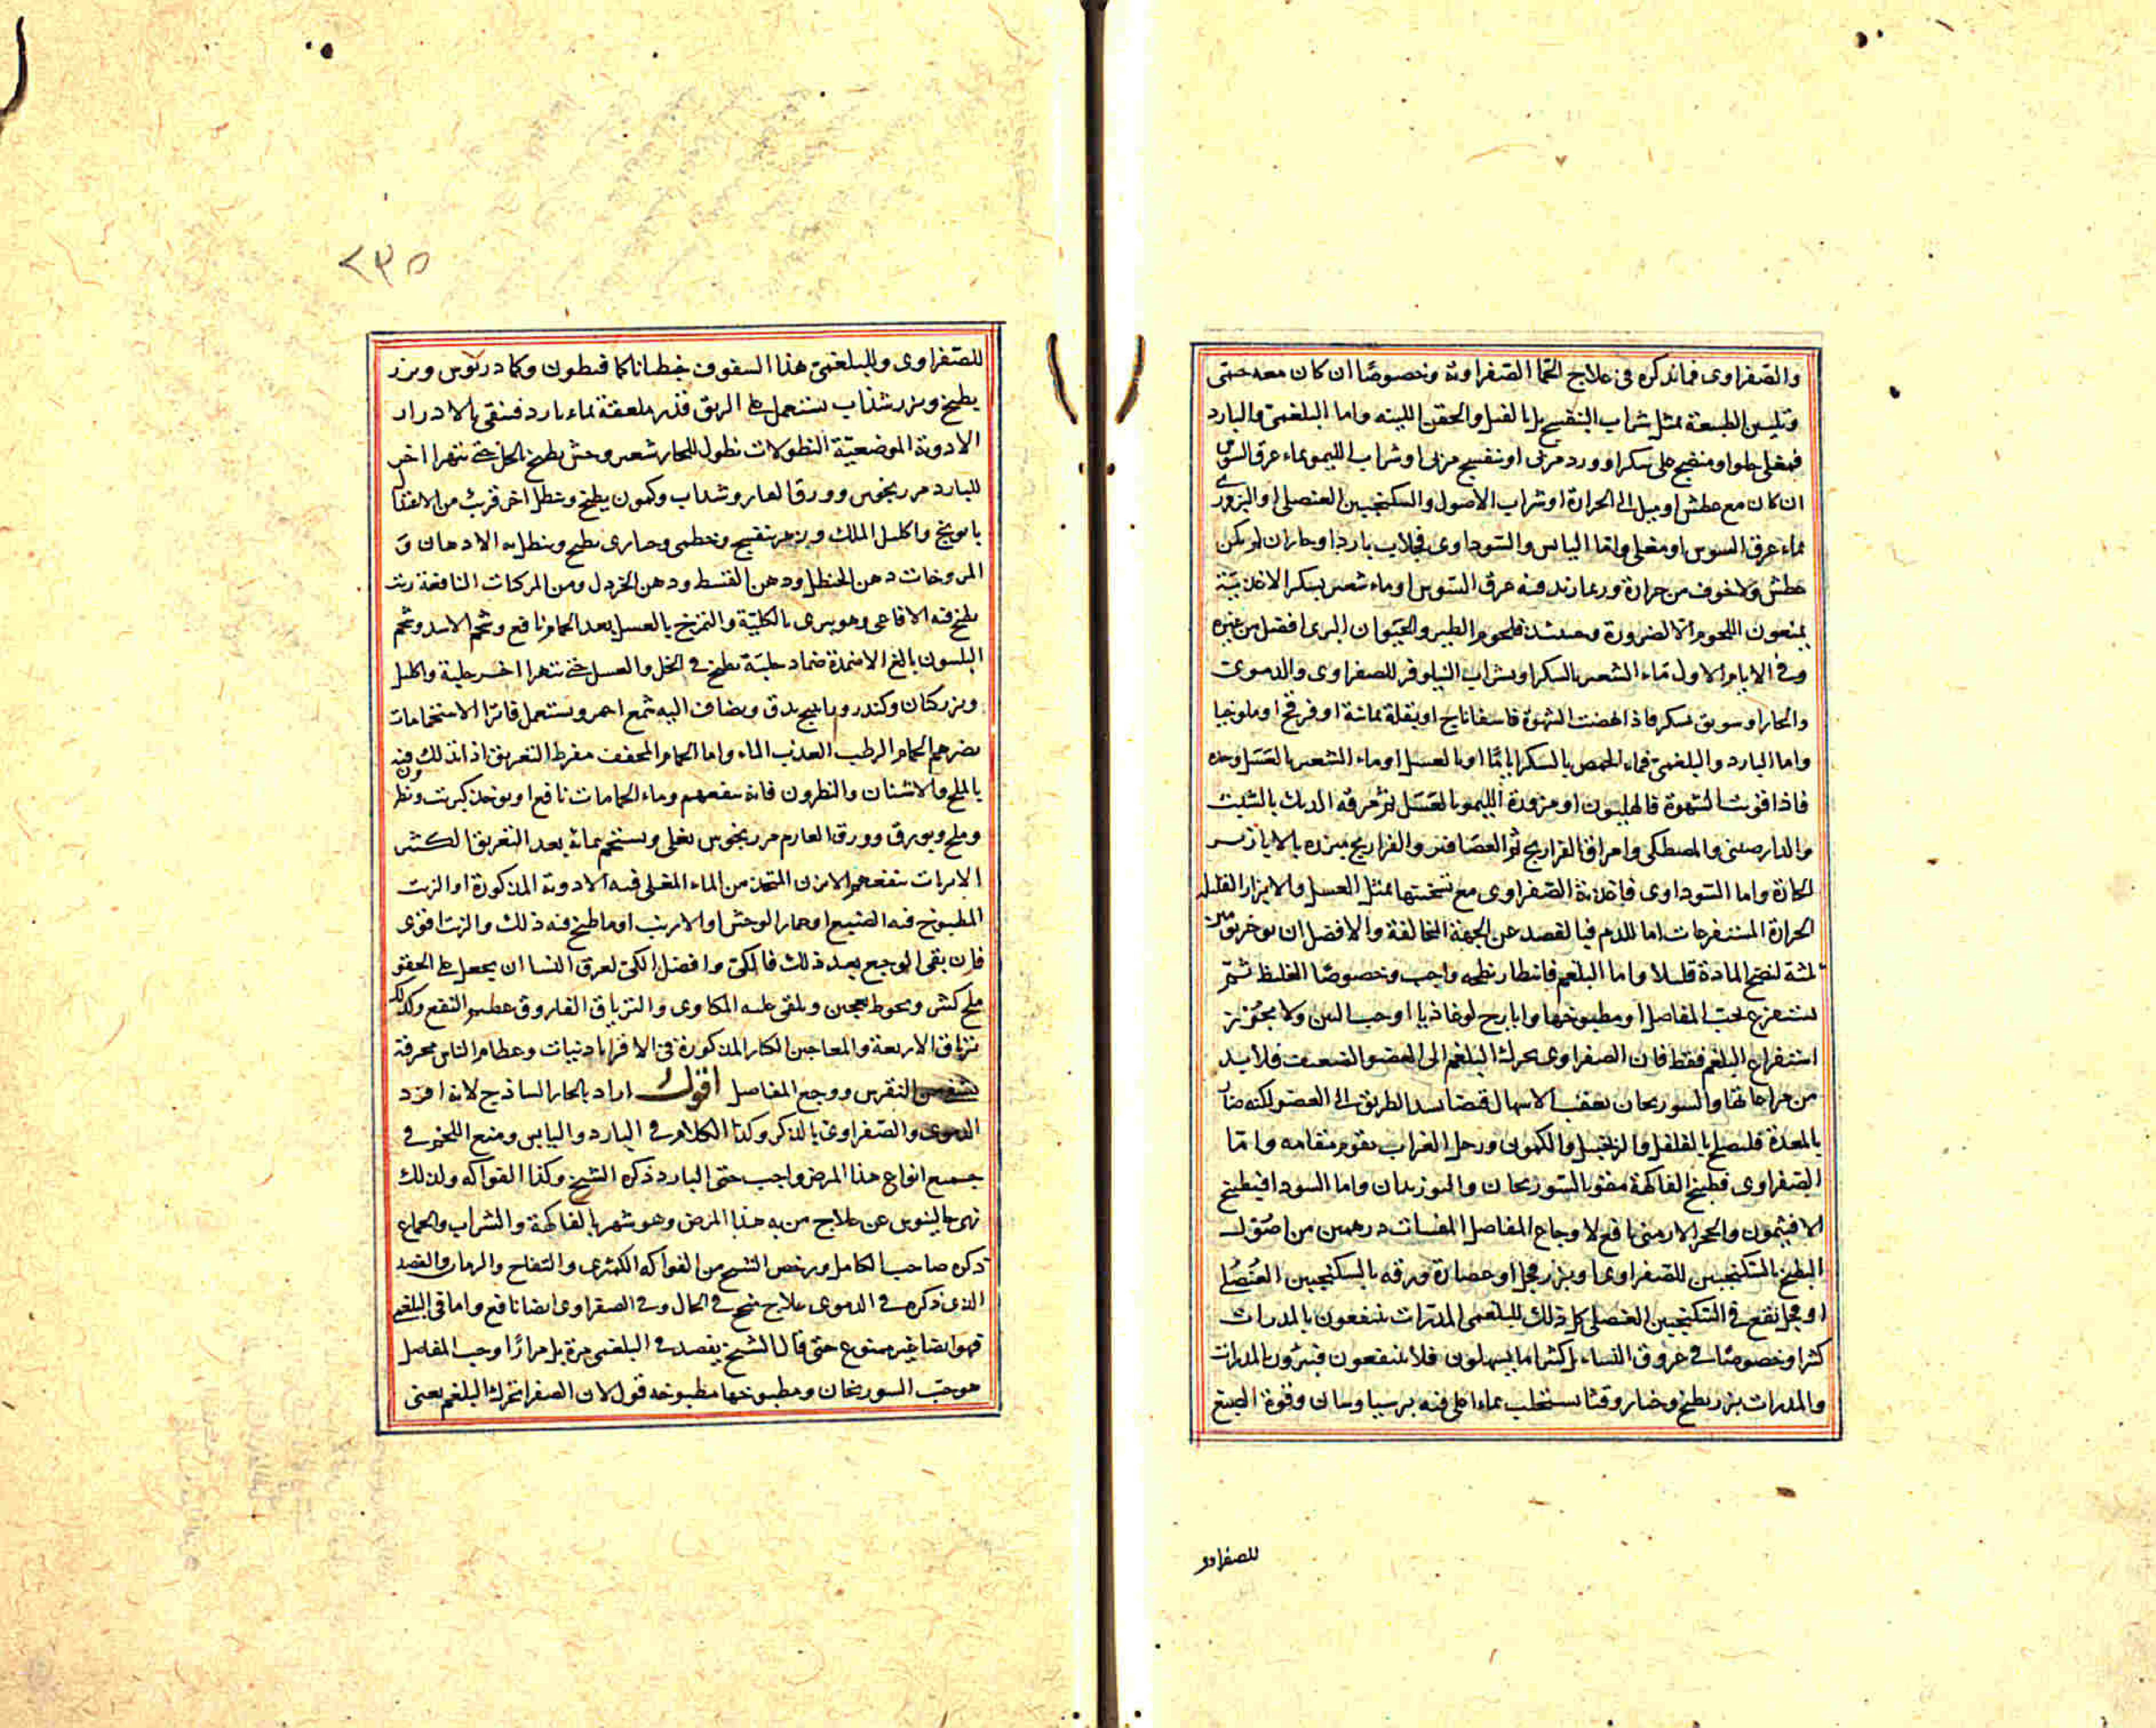 والصفراوى فماندكره فى علاج الحمى الصفراوية وخصوصًا ان كان معه حمى
وتليين الطبيعة بمثل شراب البنفسج بل بالفتل والحقن اللينه واما البلغمى والبارد
فمغلى حلو او منضج على سكر او ورد مربى او بنفسج مربى او شراب الليمو بماء عرق السوس
ان كان مع عطش او ميل الى الحرارة او شراب الاصول والسكنجبين العنصلى او البزورى
بماء عرق السوس او مغلى واما اليابس والسوداوى فجلاب باردا وحارا ان لم يكن
عطش ولا خوف من حرارة وربما زيد فيه عرق السوس او ماء شعير بسكر الاغذية
يمنعون اللحوم الا لضرورة وحينئذ فلحوم الطير والحيوان البرى افضل من غيره
وفى الايام الاول ماء الشعير بالسكر او بشراب النيلوفر للصفراوى والدموى
والحار او سويق بسكر فاذا نهضت الشهوة فاسفاناخ او بقلة يمانية او قرع او ملوخيا
واما البارد والبلغمى فماء الحمص بالسكر اياما او بالعسل او ماء الشعير بالعسل وحده
فاذا قويت الشهوة فالهليون او مزورة الليمو بالعسل ثم مرقة الديك بالشبت
والدارصينى والمصطكى وامراق الفراريج ثم العصافير والفراريج مبزره بالابازير
الحارة واما السوداوى فاغذية الصفراوى مع تسخينها بمثل العسل والابزار القليله
الحرارة المستفرغات اما للدم فبالفصد عن الجهة المخالفة والافضل ان يوخر يومين
ثلثة لنضج المادة قليلا واما البلغم فانتظار نضجه واجب وخصوصًا الغليظ ثم
يستفرغ بحب المفاصل او مطبوخها وايارج لوغاذيا او حب النتن ولا يجوز
استفراغ البلغم فقط فان الصفراوى يحرك البلغم الى العضو الضعيف فلا بد
من مراعاتها والسورنجان يعقب الاسهال قبضا يسد الطريق الى العضو لكنه ضار
بالمعدة فليصلح بالفلفل والزنجبيل والكمون ورجل الغراب يقوم مقامه واما
الصفراوى فطبيخ الفاكهة مقويا بالسورنجان والبوزيدان واما السودا فبطبيخ
الافتيمون والحجر الارمنى نافع لاوجاع المفاصل المقيئات درهمين من اصول
البطيخ بالسكنجبين للصفراوى او بزر فجل او عصارة ورقه بالسكنجبين العنصلى
او فجل نقع فى السكنجبين العنصلى كل ذلك للبلغمى المدرات ينتفعون بالمدرات
كثيرا وخصوصًا فى عروق النساء بل كثيرا ما يسهلون فلا ينتفعون فيبرؤن بالمدرات
والمدرات بزر بطيخ وخيار وقثا يستحلب بماء اغلى فيه برسياوشان وفوة الصبغ
للصفراوى
٢٣٥
للصفراوى وللبلغمى هذا السفوف جنطيانا كمافيطوس وكمادريوس وبزر
بطيخ وبزر سذاب يستعمل على الريق قدر ملعقة بماء بارد فينقى بالادرار
الادوية الموضعية النطولات نطول للحار شعير وخش يطبخ بالخل حتى يتهرا اخر
للبارد مرزنجوش وورق الغار وسذاب وكمون يطبخ وينطل اخر قريب من الاعتدال
بابونج واكليل الملك وزهر بنفسج وخطمى وخبازى يطبخ وينطل به الادهان و
المروخات دهن الحنظل ودهن القسط ودهن الخردل ومن المركبات النافعة زيت
طبخ فيه الافاعى وهو يبرى بالكلية والتمريخ بالعسل بعد الحمام نافع وشحم الاسد وشحم
البلسون بالغ الاضمدة ضماد حلبة تطبخ فى الخل والعسل حتى تتهرا اخر حلبة واكليل
وبزر كتان وكندر وبابونج يدق ويضاف اليه شمع احمر ويستعمل فاترا الاستحمامات
يضرهم الحمام الرطب العذب الماء واما الحمام المجفف مفرط التعريق اذا دلك فيه
بالملح والاشنان والنطرون فانه ينفعهم وماء الحمامات نافع او يوخذ كبريت ونطرون
وملح وبورق وورق الغار ومرزنجوش يغلى ويستحم بمائه بعد التعريق الكثير
الابزنات ينفعهم الابزن المتخذ من الماء المغلى فيه الادوية المذكورة او الزيت
المطبوخ فيه الضبع او حمار الوحش او الارنب او ما طبخ فيه ذلك والزيت اقوى
فان بقى الوجع بعد ذلك فالكى وافضل الكى لعرق النسا ان يجعل على الحقو
ملح كبش ويحوط بعجين ويلقى عليه المكاوى والترياق الفاروق عظيم النفع وكذلك
ترياق الاربعة والمعاجين الكبار المذكورة فى الاقراباذنيات وعظام الناس محرقة
يشفى من النقرس ووجع المفاصل اقول اراد بالحار الساذج لانه افرد
الدموى والصفراوى بالذكر وكذا الكلام فى البارد واليابس ومنع اللحوم فى
جميع انواع هذا المرض واجب حتى البارد ذكره الشيخ وكذا الفواكه ولذلك
نهى جالينوس عن علاج من به هذا المرض وهو شهر بالفاكهة والشراب والجماع
ذكره صاحب الكامل ورخص الشيخ من الفواكه الكمثرى والتفاح والرمان والفصد
الذى ذكره فى الدموى علاج منجح فى الحال وفى الصفراوى ايضا نافع واما فى البلغمى
فهو ايضا غير ممنوع حتى قال الشيخ يفصد فى البلغمى مرة بل مرارًا وحب المفاصل
هو حب السورنجان ومطبوخها مطبوخه قول لان الصفرا تحرك البلغم يعنى